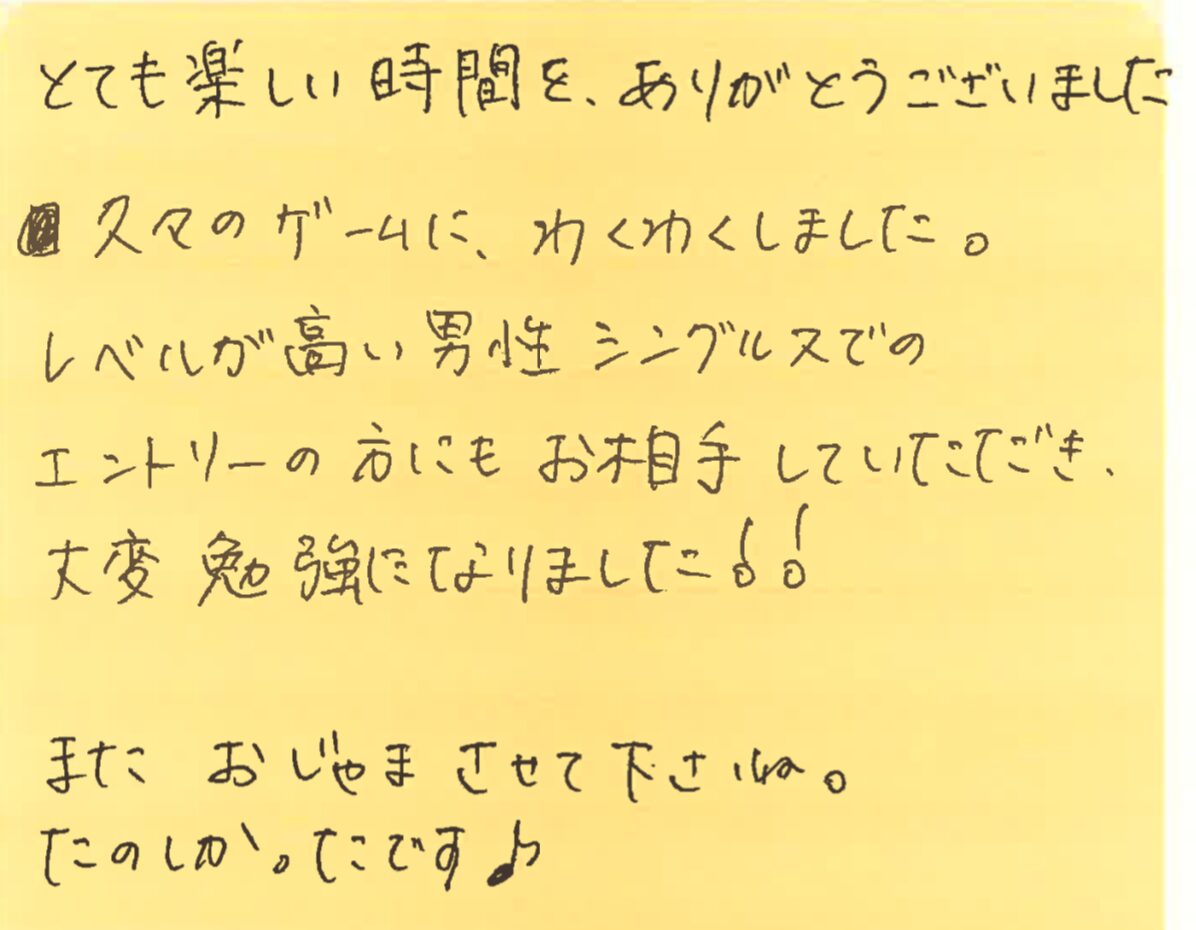 とても楽しい時間を、ありがとうございました
久々のゲームに、わくわくしました。
レベルが高い男性シングルスでの
エントリーの方にもお相手していただき、
大変勉強になりました!!
またおじゃまさせて下さいね。
たのしかったです♪